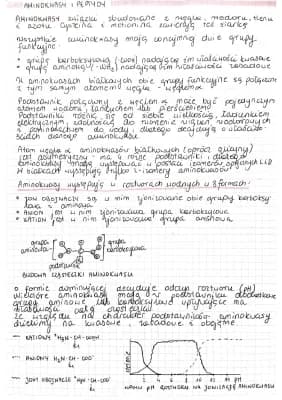 AMINOKWASY I PEPTYDY
AMINOKWASY związki zbudowane z węgla, wodoru, tlenu
i azotu. Cysteina i metionina zawierają też siarkę
Wszystkie aminokwasy mają co najmniej dwie grupy
funkcyjne
• grupę karboksylową (-COOH) nadającą im właściwości kwasowe
• grupę aminową (-NH₂) nadającą im właściwości zasadowe
W aminokwasach białkowych obie grupy funkcyjne są połączone
z tym samym atomem węgla - węglem α
Podstawnik połączony z węglem α może być pojedynczym
atomem wodoru, łańcuchem lub pierścieniem
Podstawniki różnią się od siebie wielkością, ładunkiem
elektrycznym, zdolnością do tworzenia wiązań wodorowych
i do wody, dlatego decydują o właściwo-
ściach danego aminokwasu
Atom węgla α aminokwasów białkowych (oprócz glicyny)
jest asymetryczny - ma 4 różne podstawniki dlatego
aminokwasy mogą występować w postaci izomerów optycznych L i D
W białkach występują tylko L-izomery aminokwasów
Aminokwasy występują w roztworach wodnych w 3 formach:
• JON OBOJNACZY są w nim zjonizowane obie grupy karboksy-
lowa i aminowa
• ANION jest w nim zjonizowana grupa karboksylowa
• KATION jest w nim zjonizowana grupa aminowa
grupa
aminowa
grupa
karboksylowa
podstawnik
BUDOWA CZĄSTECZKI AMINOKWASU
O formie dominującej decyduje odczyn roztworu (pH)
Niektóre aminokwasy mają w podstawniku dodatkowe
grupy aminowe lub karboksylowe wpływające na
właściwości całej cząsteczki
Ze względu na charakter podstawników aminokwasy
dzielimy na kwasowe, zasadowe i obojętne.
KATIONY ⁺H₃N-CH-COOH
R₁
ANIONY H₂N-CH-COO⁻
R₁
JONY OBOJNACZE ⁺H₃N-CH-COO⁻
R₁
2 4 6 8 10 12 14 pH
WPŁYW pH ROZTWORU NA JONIZACJĘ AMINOKWASU